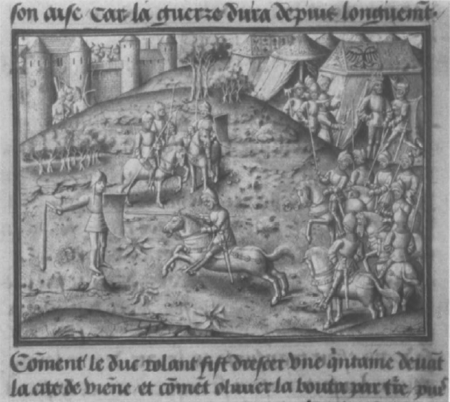 son aise Car la guerre dura depuis longuem̄t.
Cōment le duc rolant fist drescer vne q̄ntaine deuāt
la cite de viēne et cōmēt oliuier la bouta par t̄re